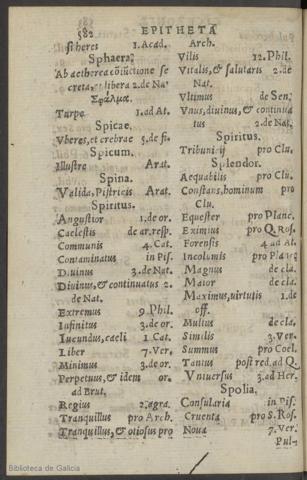 582 EPITHETA
stheres 1. Acad.
Sphaera.
Ab aetherea cōiūctione se
creta, & libera 2. de Na.
Σφάλμα.
Turpe 1. ad At.
Spicae.
Vberes, et crebrae 5. de fi.
Spicum.
Illustre Arat.
Spina.
Valida, Pistricis Arat.
Spiritus.
Angustior 1. de or.
Caelestis de ar. resp.
Communis 4. Cat.
Contaminatus in Pis.
Diuinus 3. de Nat.
Diuinus, & continuatus 2.
de Nat.
Extremus 9. Phil.
Infinitus 3. de or.
Iucundus, caeli 1. Cat.
Liber 7. Ver.
Minimus 3. de or.
Perpetuus, & idem or.
ad Brut.
Regius 2. agra.
Tranquillus pro Arch.
Tranquillus, & otiosus pro
Arch.
Vilis 12. Phil.
Vitalis, & salutaris 2. de
Nat.
Vltimus de Sen.
Vnus, diuinus, & continua
tus 2. de Nat.
Spiritus.
Tribunitij pro Clu.
Splendor.
Aequabilis pro Clu.
Constans, hominum pro
Clu.
Equester pro Planc.
Eximius pro Q. Ros.
Forensis 4. ad At.
Incolumis pro Planc
Magnus de cla.
Maior de cla.
Maximus, uirtutis 1. de
off.
Multus de cla.
Similis 3. Ver.
Summus pro Coel.
Tantus post red. ad Q.
Vniuersus 3. ad Her.
Spolia.
Consularia in Pis.
Cruenta pro S. Ros.
Noua 7. Ver.
Pul-
Biblioteca de Galicia